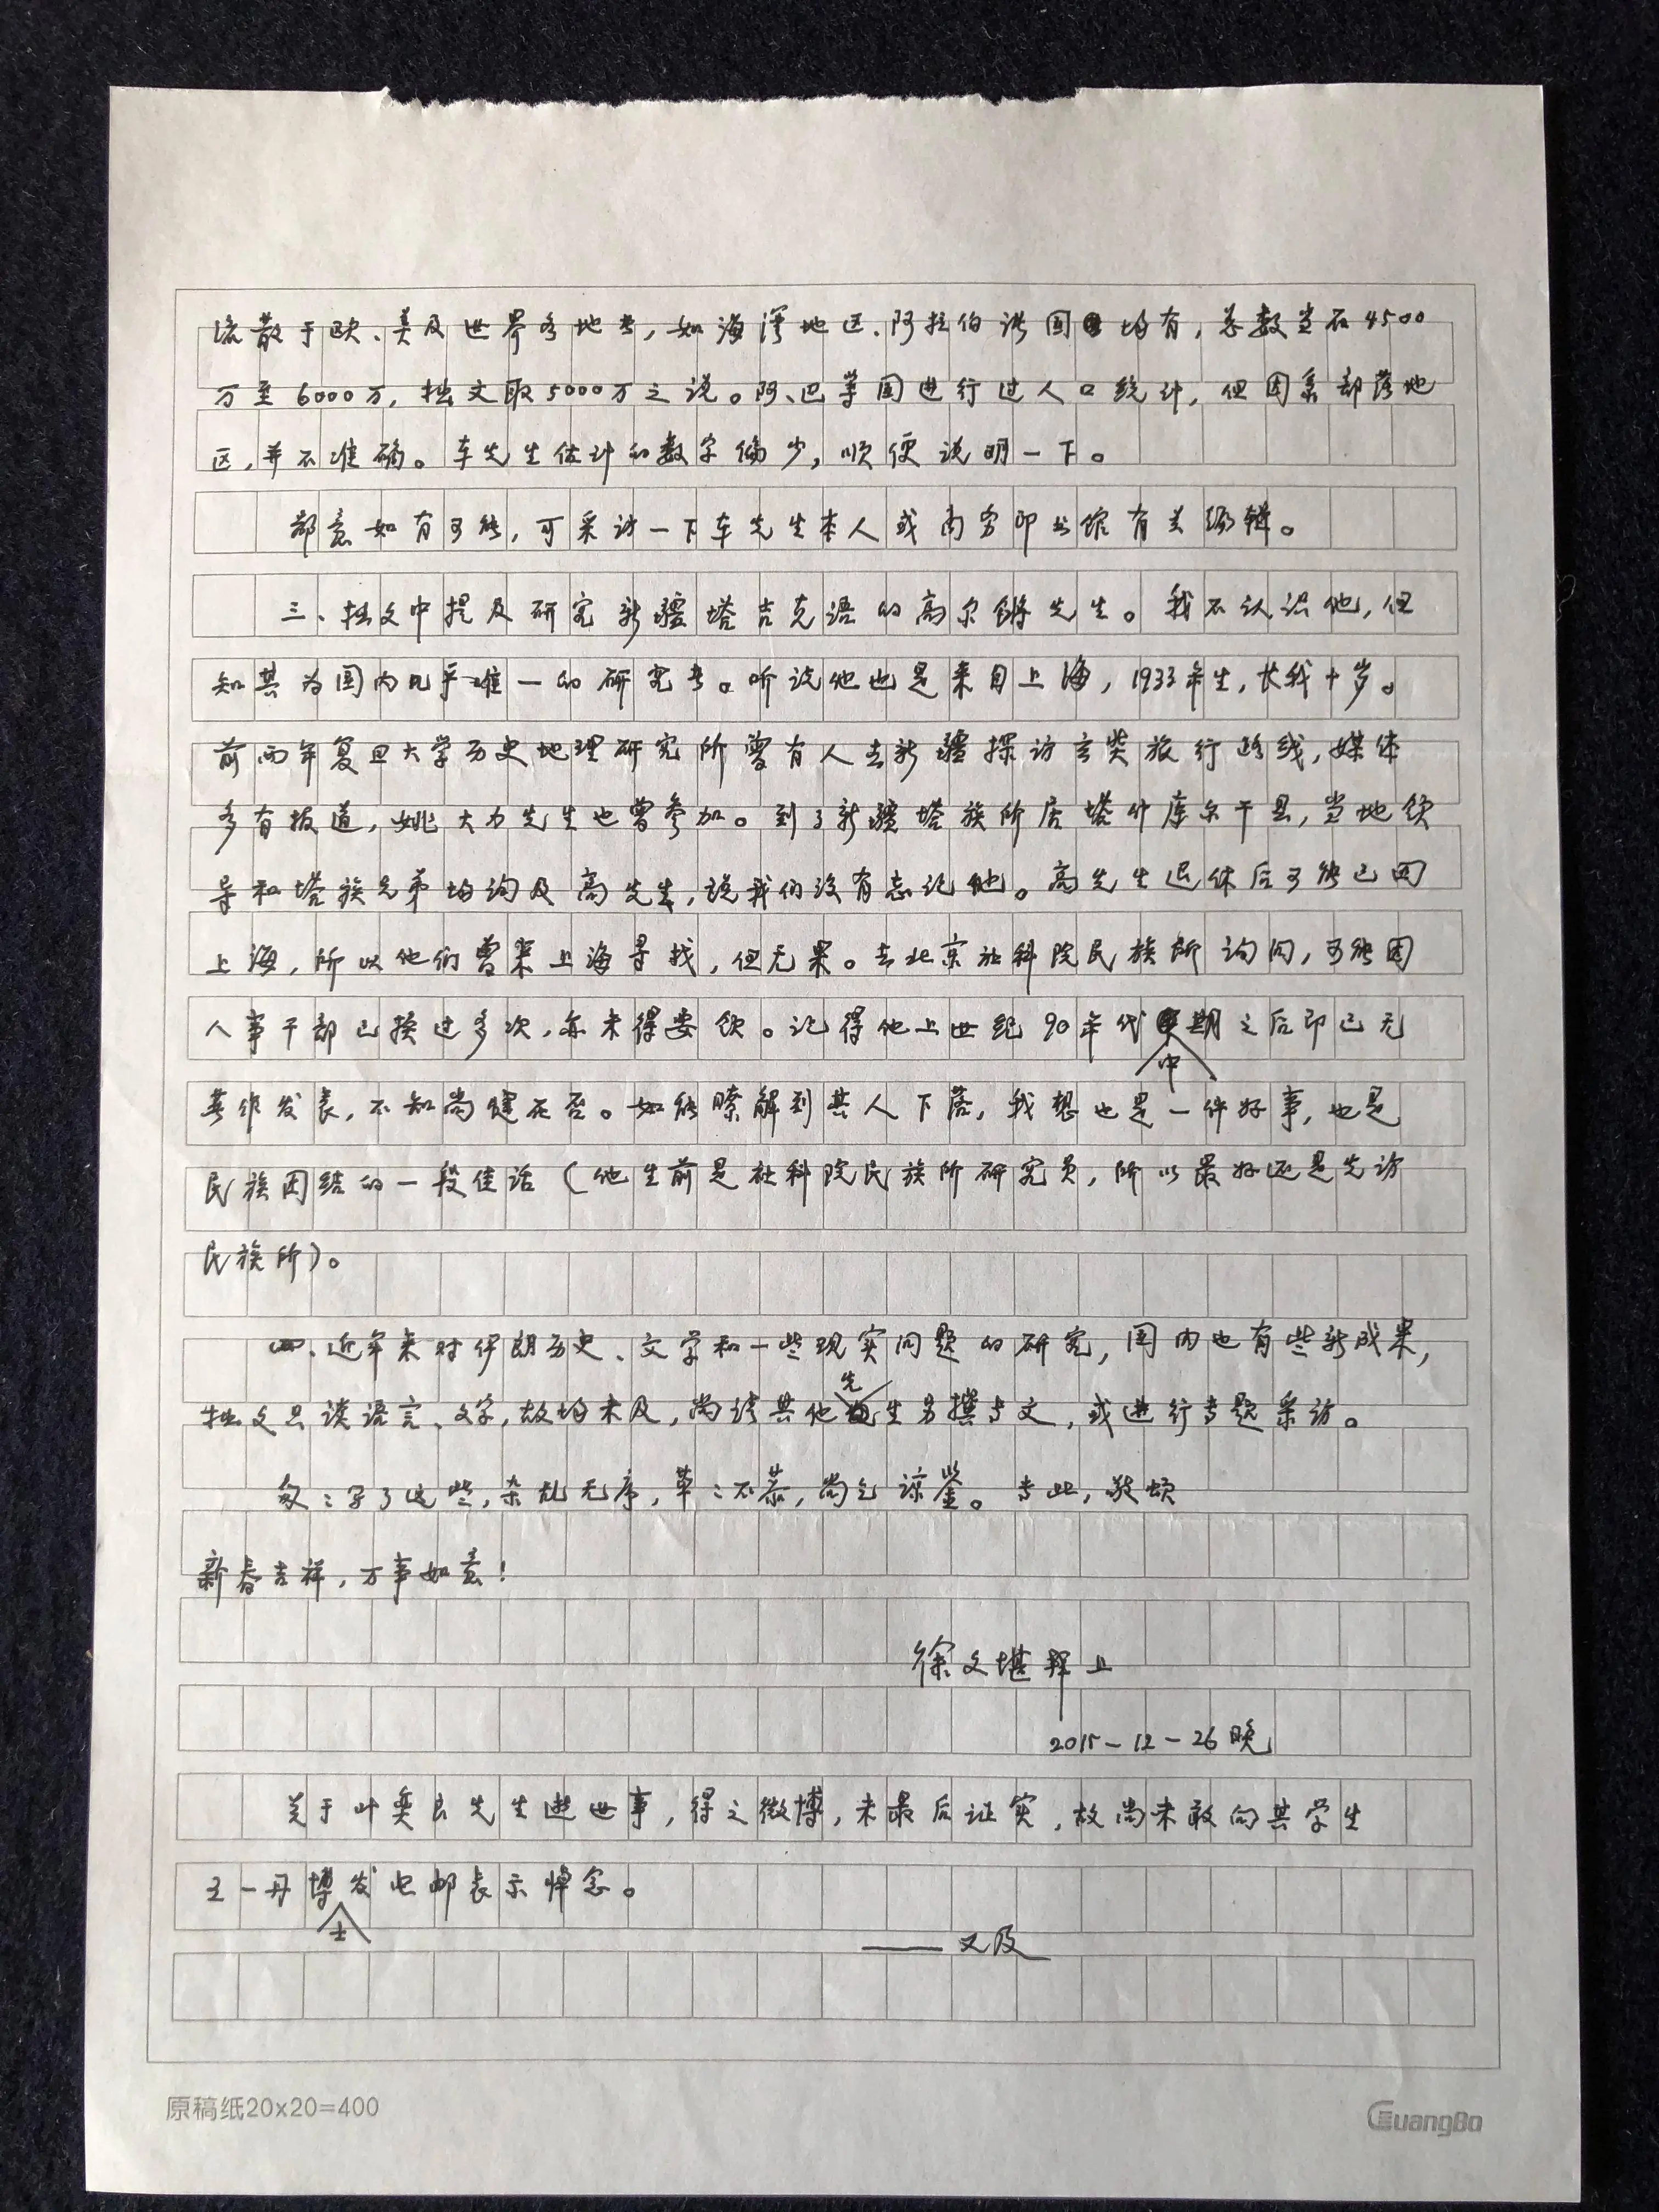 流散于欧、美及世界各地者,如海湾地区、阿拉伯诸国均有,总数当在4500
万至6000万,拙文取5000万之说。阿、巴等国进行过人口统计,但因系部落地
区,并不准确。车先生估计的数字偏少,顺便说明一下。
鄙意如有可能,可采访一下车先生本人或商务印书馆有关编辑。
三、拙文中提及研究新疆塔吉克语的高尔锵先生。我不认识他,但
知其为国内几乎唯一的研究者。听说他也是来自上海,1933年生,长我十岁。
前两年复旦大学历史地理研究所曾有人去新疆探访玄奘旅行路线,媒体
多有报道,姚大力先生也曾参加。到了新疆塔族所居塔什库尔干县,当地领
导和塔族兄弟均询及高先生,说我们没有忘记他。高先生退休后可能已回
上海,所以他们曾来上海寻找,但无果。去北京社科院民族所询问,可能因
人事干部已换过多次,亦未得要领。记得他上世纪90年代中期之后即已无
著作发表,不知尚健在否。如能瞭解到其人下落,我想也是一件好事,也是
民族团结的一段佳话(他生前是社科院民族所研究员,所以最好还是先访
民族所)。
四、近年来对伊朗历史、文学和一些现实问题的研究,国内也有些新成果,
拙文只谈语言、文字,故均未及,尚请其他先生另撰专文,或进行专题采访。
匆匆写了这些,杂乱无序,草草不恭,尚乞谅鉴。专此,敬颂
新春吉祥,万事如意!
徐文堪 拜上
2015-12-26晚
关于叶奕良先生逝世事,得之微博,未最后证实,故尚未敢向其学生
王一丹博士发电邮表示悼念。
——又及
原稿纸20×20=400
GuangBo